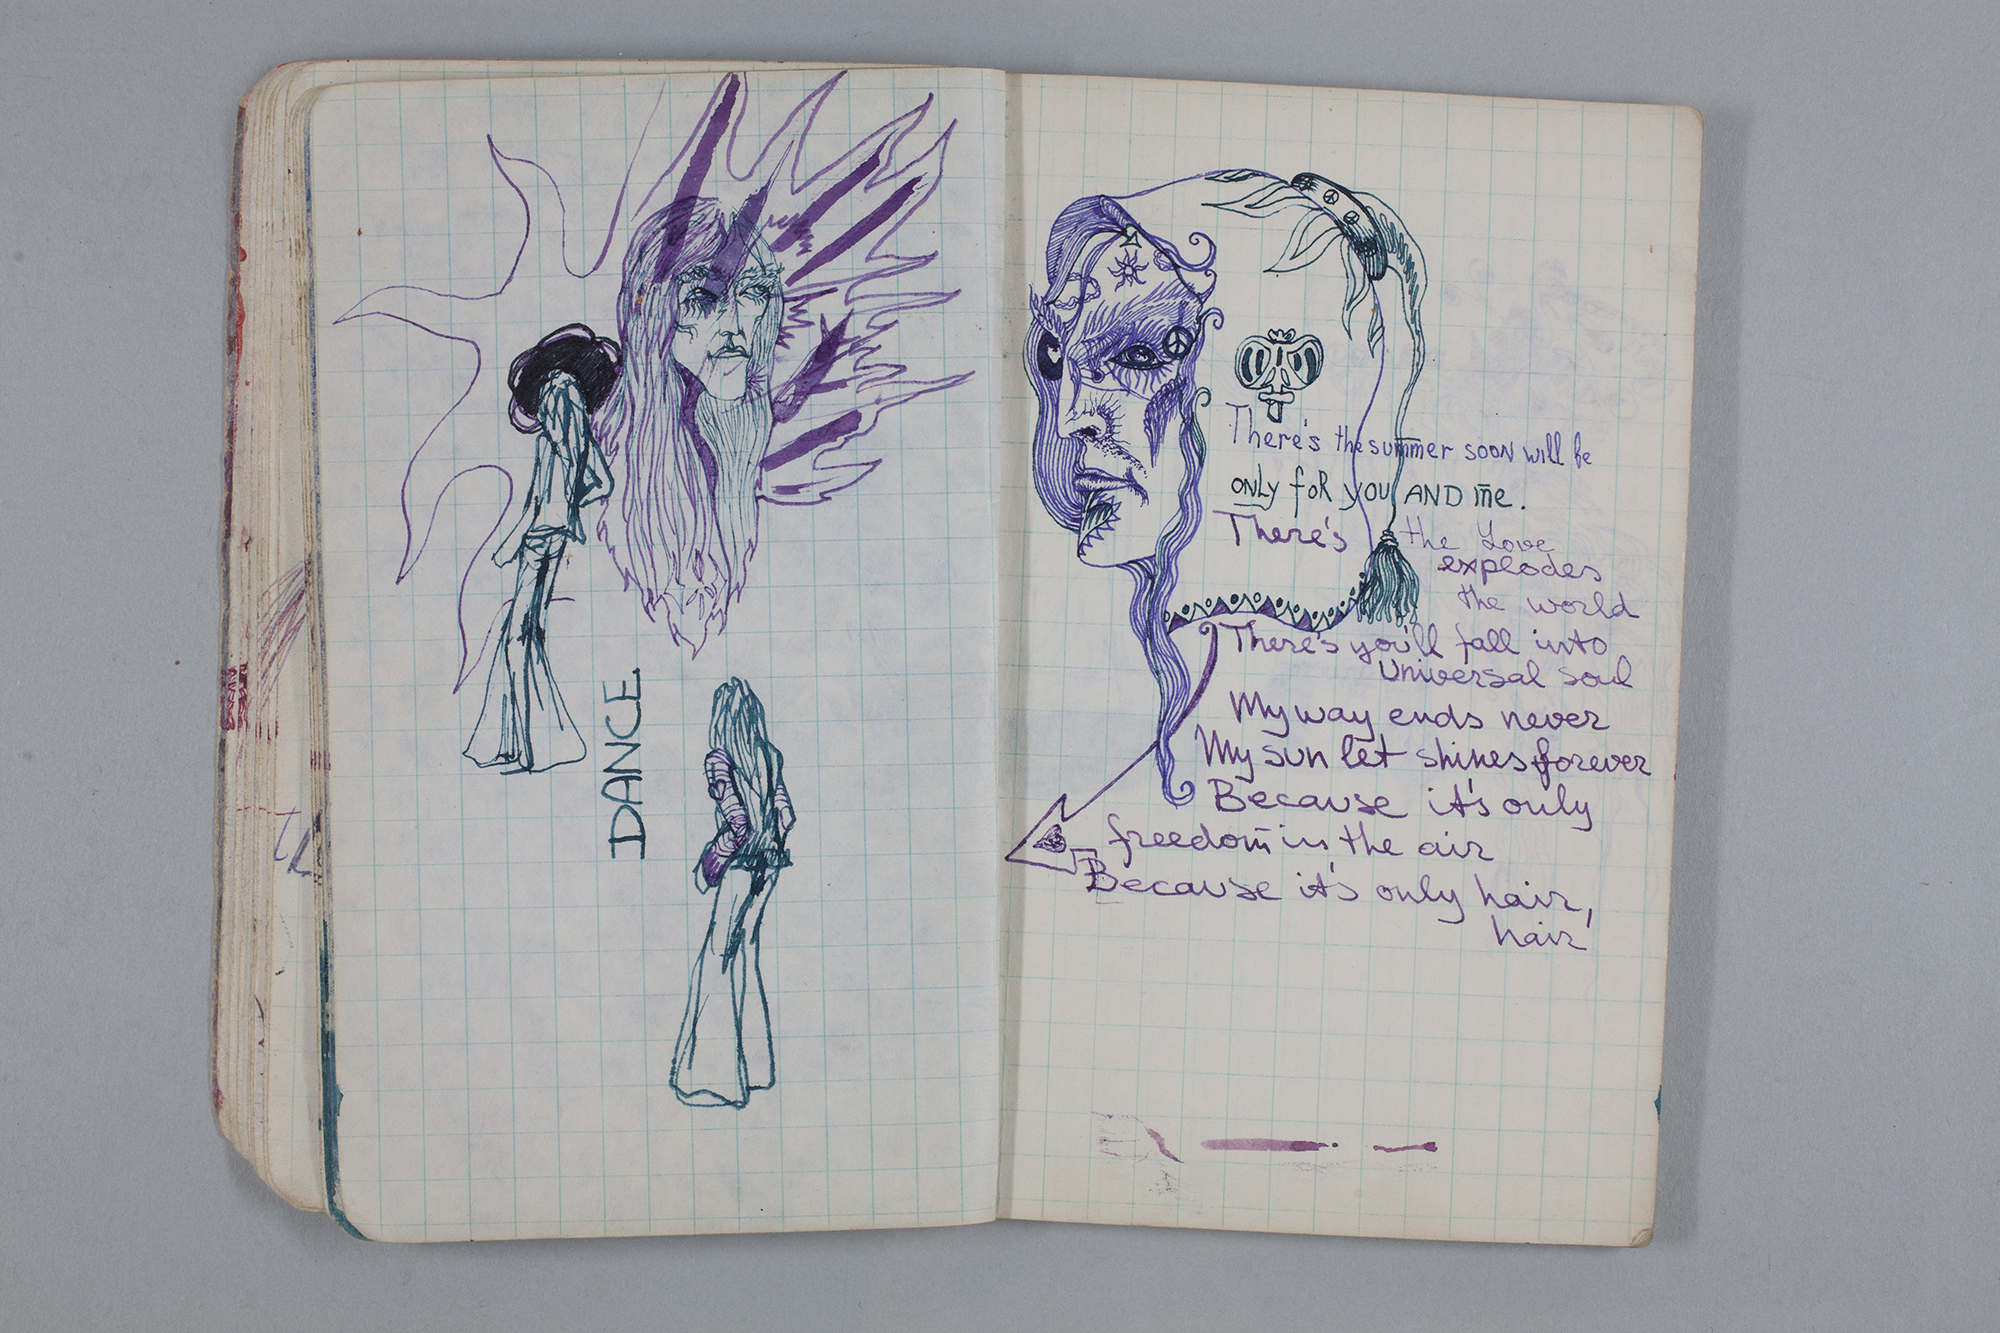 DANCE
There's the summer soon will be
only for you AND me.
There's the Love
explodes
the world
There's you'll fall into
Universal Soul
My way ends never
My sun let shines forever
Because it's only
freedom in the air
Because it's only hair,
hair